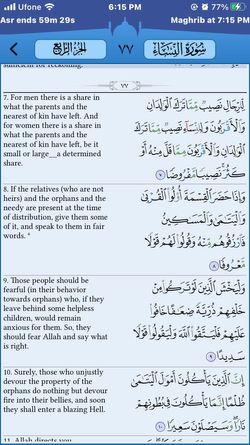 Ufone 6:15 PM 77%
Asr ends 59m 29s Maghrib at 7:15 PM
الجزء الرابع ٧٧ سورة النساء
sufficient for reckoning.
٧٧
7. For men there is a share in
what the parents and the
nearest of kin have left. And
for women there is a share in
what the parents and the
nearest of kin have left, be it
small or large__a determined
share.
لِّلرِّجَالِ نَصِيبٌ مِّمَّا تَرَكَ الْوَالِدَانِ
وَالْأَقْرَبُونَ وَلِلنِّسَاءِ نَصِيبٌ مِّمَّا تَرَكَ
الْوَالِدَانِ وَالْأَقْرَبُونَ مِمَّا قَلَّ مِنْهُ أَوْ
كَثُرَ نَصِيبًا مَّفْرُوضًا ٧
8. If the relatives (who are not
heirs) and the orphans and the
needy are present at the time
of distribution, give them some
of it, and speak to them in fair
words. ⁴
وَإِذَا حَضَرَ الْقِسْمَةَ أُولُو الْقُرْبَىٰ
وَالْيَتَامَىٰ وَالْمَسَاكِينُ
فَارْزُقُوهُم مِّنْهُ وَقُولُوا لَهُمْ قَوْلًا
مَّعْرُوفًا ٨
9. Those people should be
fearful (in their behavior
towards orphans) who, if they
leave behind some helpless
children, would remain
anxious for them. So, they
should fear Allah and say what
is right.
وَلْيَخْشَ الَّذِينَ لَوْ تَرَكُوا مِنْ
خَلْفِهِمْ ذُرِّيَّةً ضِعَافًا خَافُوا
عَلَيْهِمْ فَلْيَتَّقُوا اللَّهَ وَلْيَقُولُوا قَوْلًا
سَدِيدًا ٩
10. Surely, those who unjustly
devour the property of the
orphans do nothing but devour
fire into their bellies, and soon
they shall enter a blazing Hell.
إِنَّ الَّذِينَ يَأْكُلُونَ أَمْوَالَ الْيَتَامَىٰ
ظُلْمًا إِنَّمَا يَأْكُلُونَ فِي بُطُونِهِمْ
نَارًا وَسَيَصْلَوْنَ سَعِيرًا ١٠
11. Allah directs you